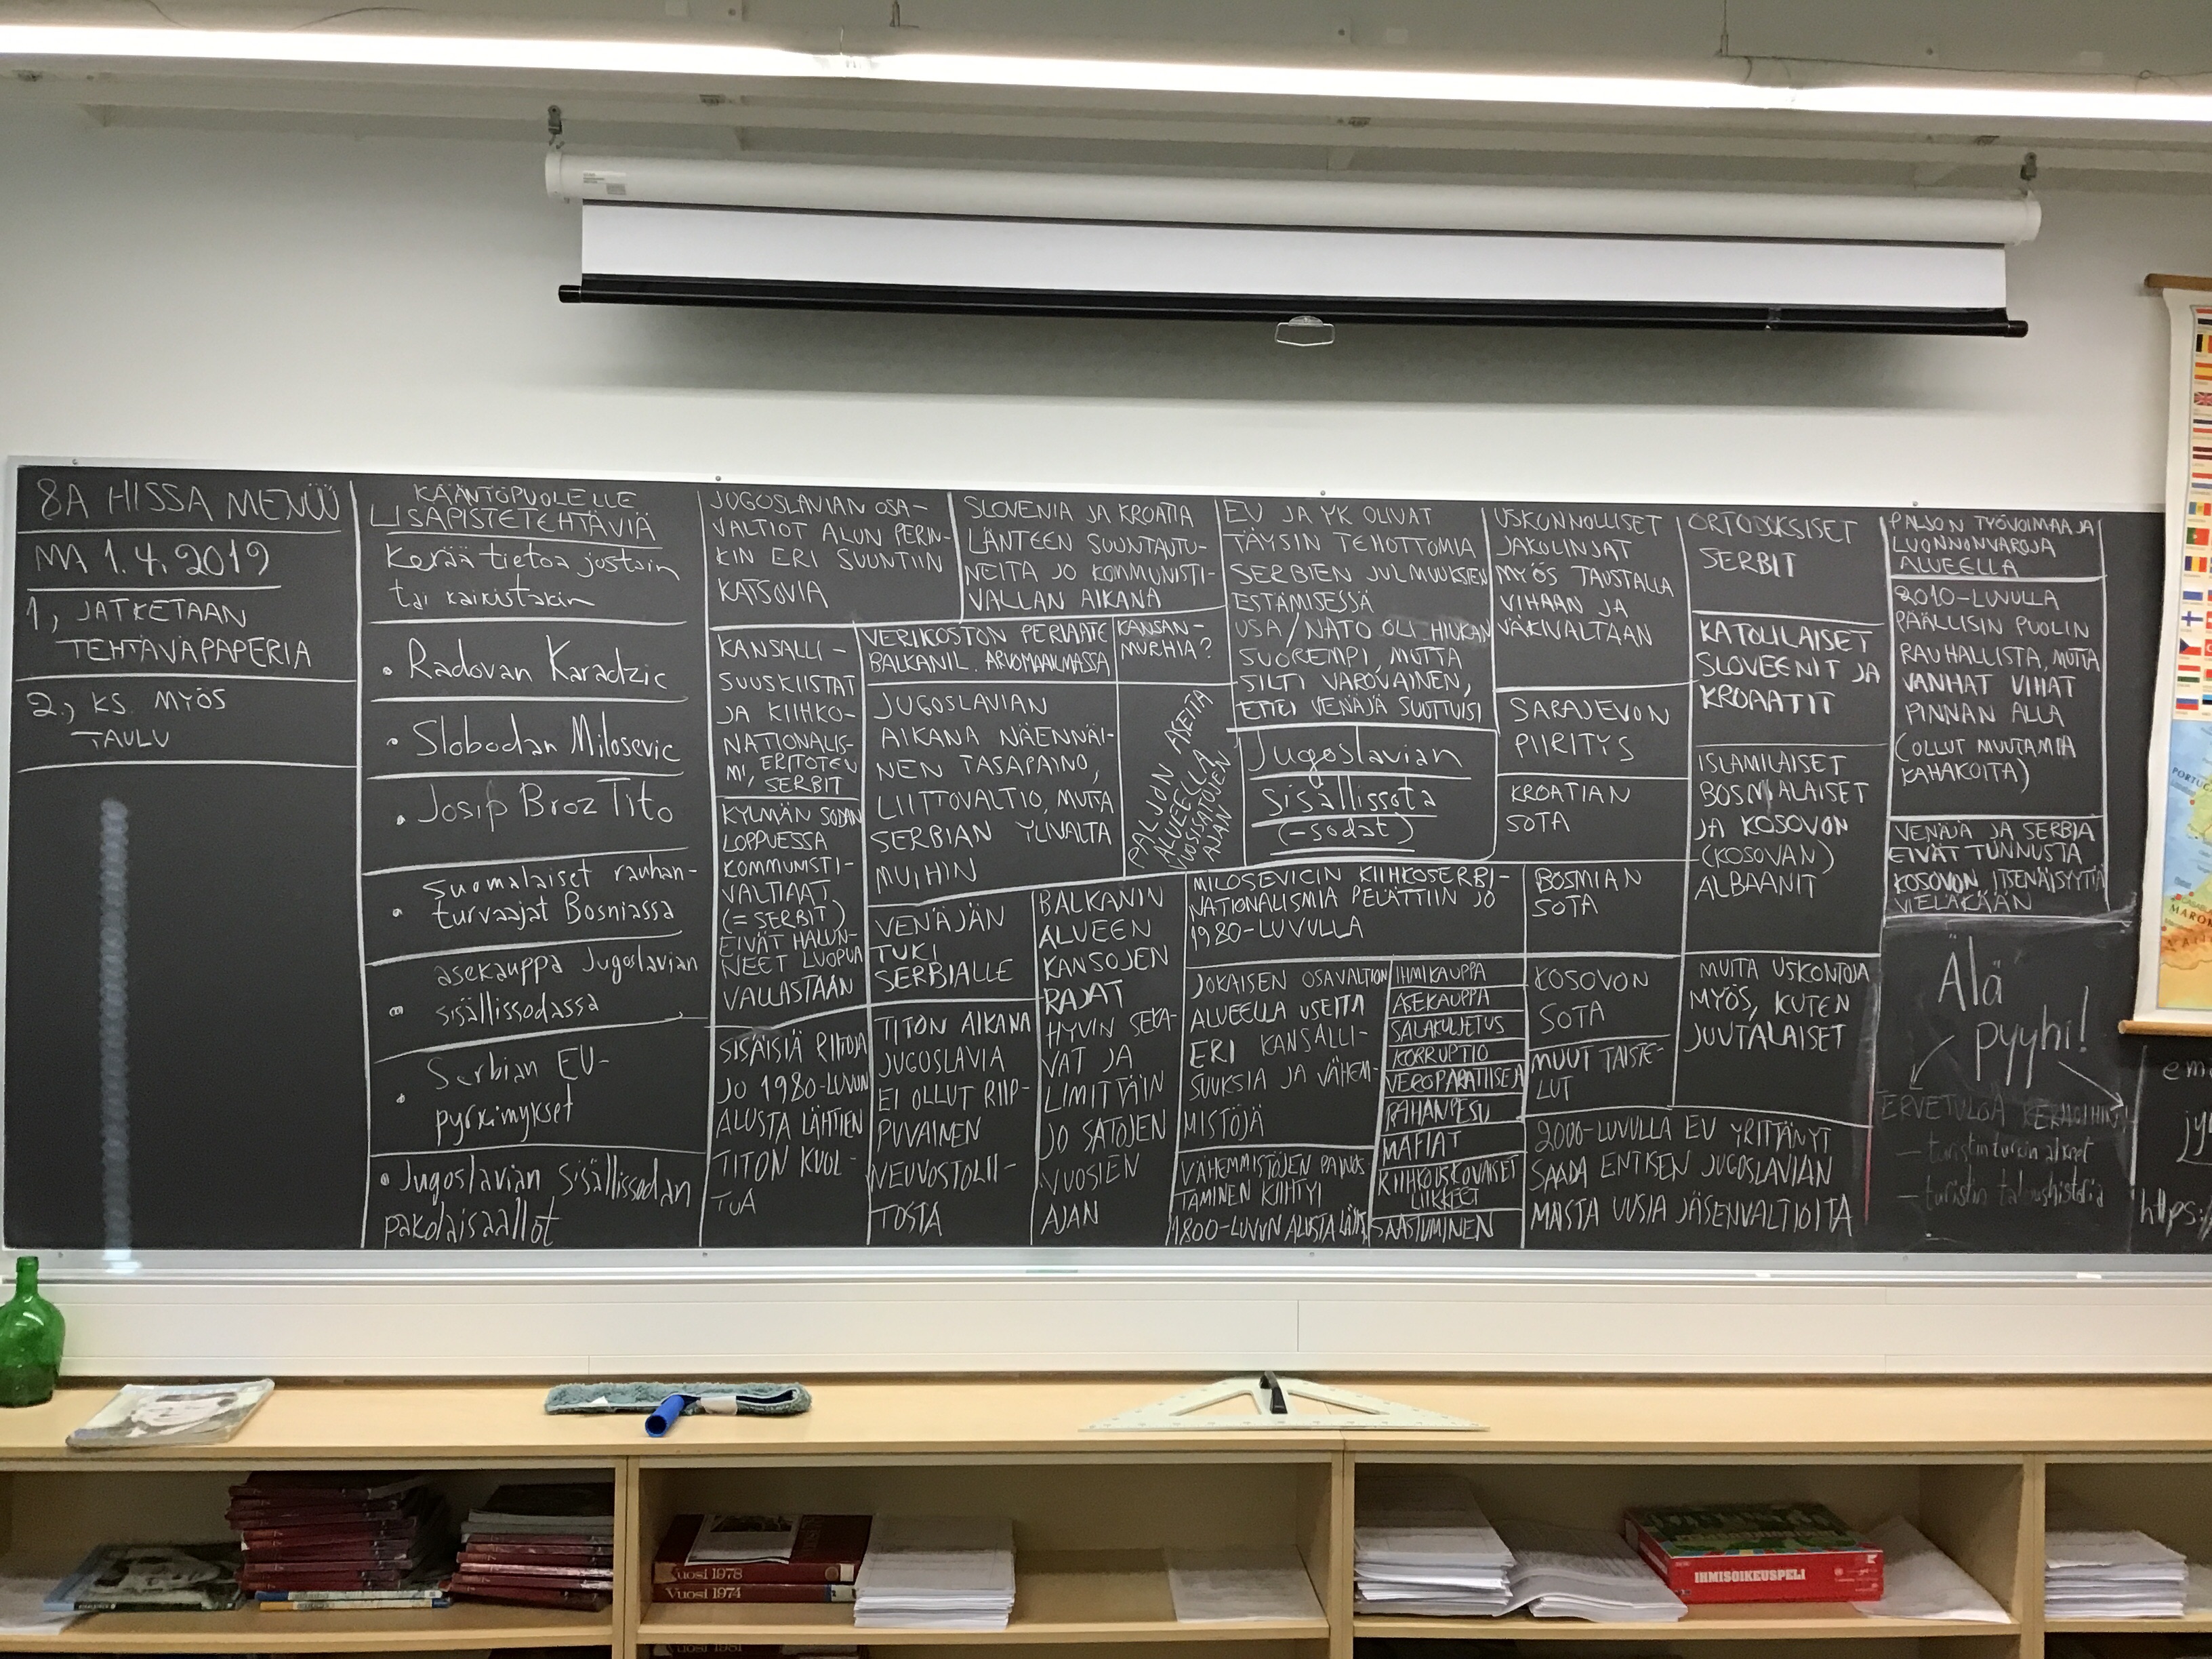 8A HISSA MENÜÜ
MA 1.4.2019
1, JATKETAAN
TEHTÄVÄPAPERIA
2., KS. MYÖS
TAULU
KÄÄNTÖPUOLELLE
LISÄPISTETEHTÄVIÄ
Kerää tietoa jostain
tai kaikistakin
• Radovan Karadzic
• Slobodan Milosevic
• Josip Broz Tito
• Suomalaiset rauhan-
turvaajat Bosniassa
• asekauppa Jugoslavian
sisällissodassa
• Serbian EU-
pyrkimykset
• Jugoslavian sisällissodan
pakolaisaallot
JUGOSLAVIAN OSA-
VALTIOT ALUN PERIN-
KIN ERI SUUNTIIN
KATSOVIA
SLOVENIA JA KROATIA
LÄNTEEN SUUNTAUTU-
NEITA JO KOMMUNISTI-
VALLAN AIKANA
KANSALLI-
SUUSKIISTAT
JA KIIHKO-
NATIONALIS-
MI, ERITOTEN
SERBIT
VERIKOSTON PERIAATE
BALKANIL. ARVOMAAILMASSA
KANSAN-
MURHIA?
JUGOSLAVIAN
AIKANA NÄENNÄI-
NEN TASAPAINO,
LIITTOVALTIO, MUTTA
SERBIAN YLIVALTA
MUIHIN
PALJON ASEITA
ALUEELLA
VUOSISATOJEN
AJAN
KYLMÄN SODAN
LOPPUESSA
KOMMUNISTI-
VALTIAAT
(= SERBIT)
EIVÄT HALUN-
NEET LUOPUA
VALLASTAAN
SISÄISIÄ RIITOJA
JO 1980-LUVUN
ALUSTA LÄHTIEN
TITON KUOL-
TUA
VENÄJÄN
TUKI
SERBIALLE
TITON AIKANA
JUGOSLAVIA
EI OLLUT RIIP-
PUVAINEN
NEUVOSTOLII-
TOSTA
BALKANIN
ALUEEN
KANSOJEN
RAJAT
HYVIN SEKA-
VAT JA
LIMITTÄIN
JO SATOJEN
VUOSIEN
AJAN
EU JA YK OLIVAT
TÄYSIN TEHOTTOMIA
SERBIEN JULMUUKSIEN
ESTÄMISESSÄ
USA/NATO OLI HIUKAN
SUOREMPI, MUTTA
SILTI VAROVAINEN,
ETTEI VENÄJÄ SUUTTUISI
Jugoslavian
sisällissota
(-sodat)
MILOSEVICIN KIIHKOSERBI-
NATIONALISMIA PELÄTTIIN JO
1980-LUVULLA
JOKAISEN OSAVALTION
ALUEELLA USEITA
ERI KANSALLI-
SUUKSIA JA VÄHEM-
MISTÖJÄ
VÄHEMMISTÖJEN PAINOS-
TAMINEN KIIHTYI
1800-LUVUN ALUSTA LÄHT.
IHMISKAUPPA
ASEKAUPPA
SALAKULJETUS
KORRUPTIO
VEROPARATIISEJA
RAHANPESU
MAFIAT
KIIHKOISKOVAISET
LIIKKEET
SAASTUMINEN
USKONNOLLISET
JAKOLINJAT
MYÖS TAUSTALLA
VIHAAN JA
VÄKIVALTAAN
SARAJEVON
PIIRITYS
KROATIAN
SOTA
BOSNIAN
SOTA
KOSOVON
SOTA
MUUT TAISTE-
LUT
2000-LUVULLA EU YRITTÄNYT
SAADA ENTISEN JUGOSLAVIAN
MAISTA UUSIA JÄSENVALTIOITA
ORTODOKSISET
SERBIT
KATOLILAISET
SLOVEENIT JA
KROAATIT
ISLAMILAISET
BOSNIALAISET
JA KOSOVON
(KOSOVAN)
ALBAANIT
MUITA USKONTOJA
MYÖS, KUTEN
JUUTALAISET
PALJON TYÖVOIMAA JA
LUONNONVAROJA
ALUEELLA
2010-LUVULLA
PÄÄLLISIN PUOLIN
RAUHALLISTA, MUTTA
VANHAT VIHAT
PINNAN ALLA
(OLLUT MUUTAMIA
KAHAKOITA)
VENÄJÄ JA SERBIA
EIVÄT TUNNUSTA
KOSOVON ITSENÄISYYTTÄ
VIELÄKÄÄN
Älä
pyyhi!
TERVETULOA
https:/
Vuosi 1978
Vuosi 1974
IHMISOIKEUSPELI